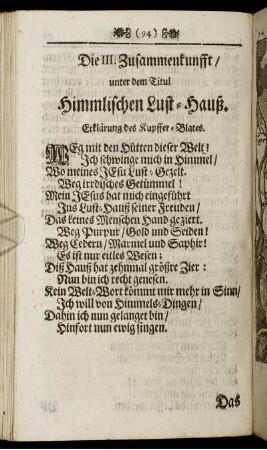 (94)
Die III. Zusammenkunfft/
unter dem Titul
Himmlischen Lust-Hauß.
Erklärung des Kupffer-Blates.
WEg mit den Hütten dieser Welt!
Ich schwinge mich in Himmel/
Wo meines JEsu Lust-Gezelt.
Weg irrdisches Getümmel!
Mein JEsus hat mich eingeführt
Ins Lust-Hauß seiner Freuden/
Das keines Menschen Hand geziert.
Weg Purpur/Gold und Seiden!
Weg Cedern/Marmel und Saphir!
Es ist nur eitles Wesen:
Diß Hauß hat zehnmal größre Zier:
Nun bin ich recht genesen.
Kein Welt-Wort kömmt mir mehr in Sinn/
Ich will von Himmels-Dingen/
Dahin ich nun gelanget bin/
Hinfort nun ewig singen.
Das